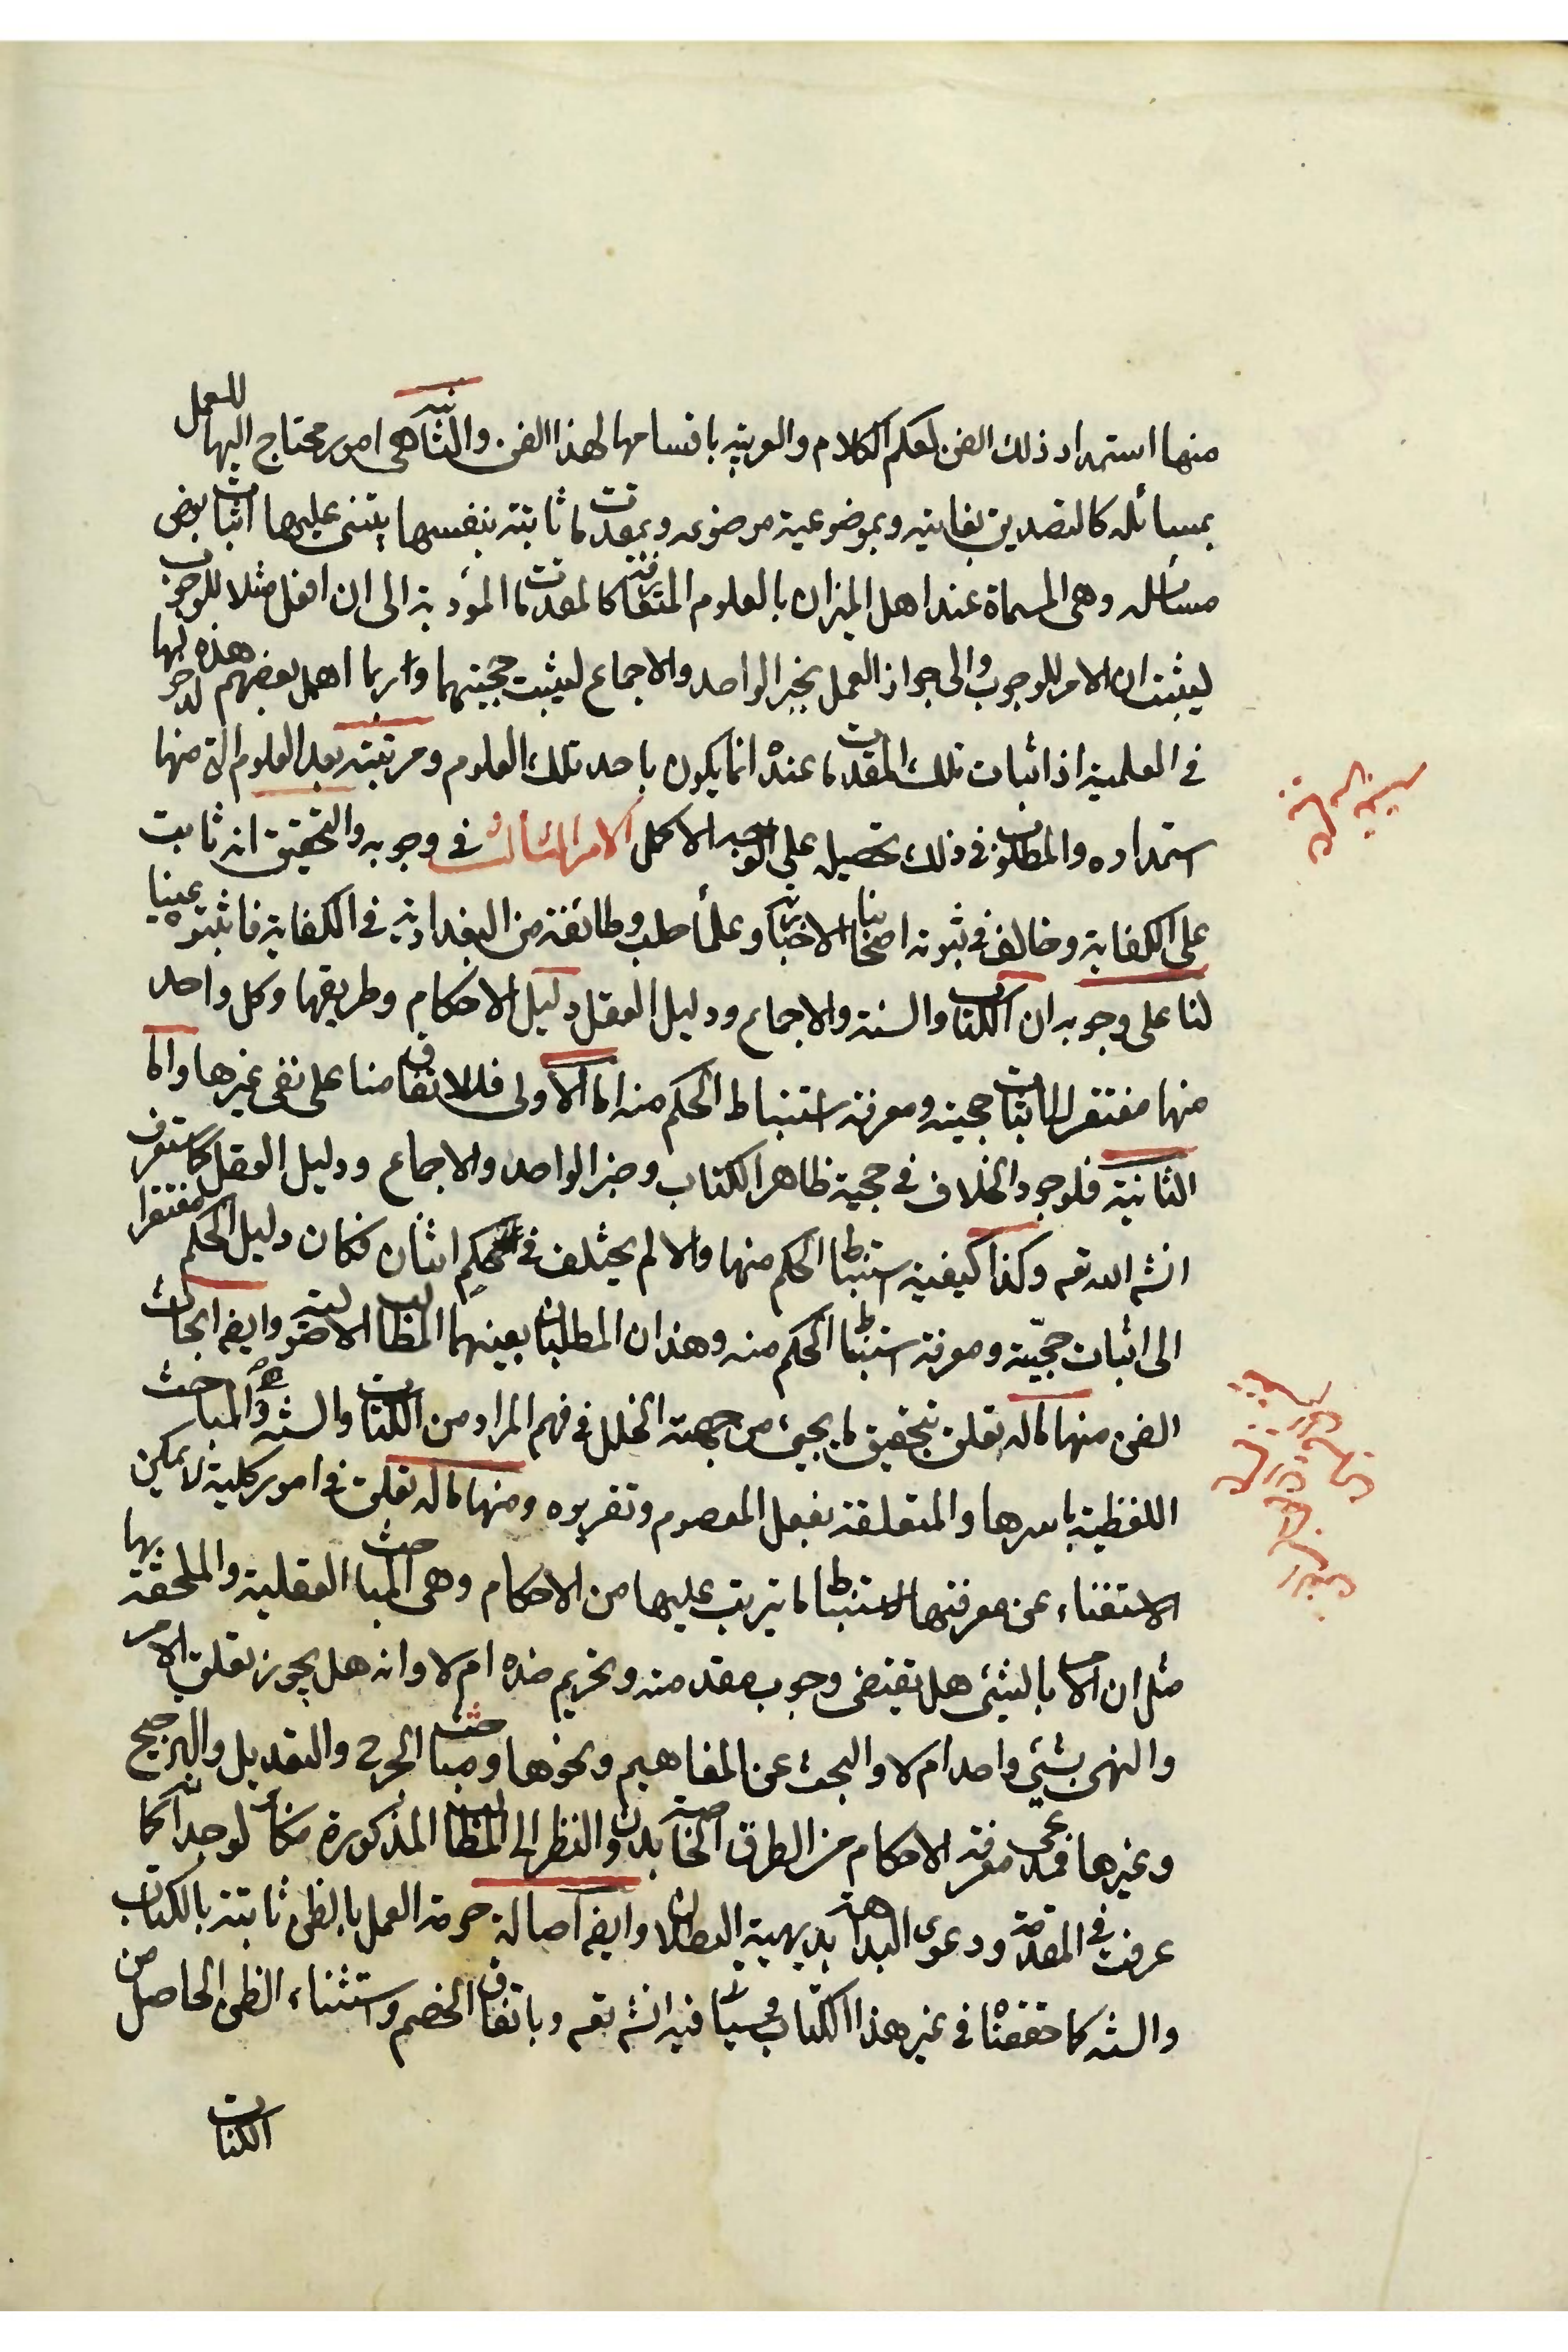 منها استمداد ذلك الفن كعلم الكلام والعربية باقسامها لهذا الفن والثانية هى امور محتاج اليها للعمل
بمسائله كالتصديق بغايته وبموضوعية موضوعه وبمقدمات ثابتة بنفسها يبتنى عليها اثبات بعض
مسائله وهى المسماة عند اهل الميزان بالعلوم المتعارفة كالمقدمات المؤدية الى ان افعل مثلا للوجوب
ليثبت ان الامر للوجوب والى جواز العمل بخبر الواحد والاجماع ليثبت حجيتهما وربما اهمل بعضهم هذه
فى العلمية اذ اثبات تلك المقدمات عنده انما يكون باحد تلك العلوم ومرتبته بعد العلوم التى منها
استمداده والمطلوب فى ذلك تحصيله على الوجه الاكمل الامر الثالث فى وجوبه والتحقيق انه ثابت
على الكفاية وخالف فى ثبوته اصحابنا الاخبارية وعلماء حلب وطائفة من البغدادية فى الكفاية فاثبتوه عينيا
لنا على وجوبه ان الكتاب والسنة والاجماع ودليل العقل دليل الاحكام وطريقها وكل واحد
منها مفتقر الى اثبات حجيته ومعرفة استنباط الحكم منه اما الاولى فللاتفاق منا على نفى غيرها واما
الثانية فلوجود الخلاف فى حجية ظاهر الكتاب وخبر الواحد والاجماع ودليل العقل كما ستعرف
انشه الله تعه وكذا كيفية استنباط الحكم منها والا لم يختلف فى الحكم اثنان فكان دليل الحكم مفتقرا
الى اثبات حجيّته ومعرفة استنباط الحكم منه وهذان المطلبان بعينهما المطالب الاصولية وايضه ابحاث
الفن منها ماله تعلق بتحقيق ما يجيئ من جهته الخلل فى فهم المراد من الكتاب والسنه وهى المباحث
اللفظية باسرها والمتعلقة بفعل المعصوم وتقريره ومنها ماله تعلق فى امور كلية لا يمكن
الاستغناء عن معرفتها لاستنباط ما يترتب عليها من الاحكام وهى المباحث العقلية والملحقة بها
مثل ان الامر بالشيئ هل يقتضى وجوب مقدمته وتحريم ضده ام لا وانه هل يجوز تعلق الامر
والنهى بشيئ واحد ام لا والبحث عن المفاهيم ونحوها ومباحث الجرح والتعديل والترجيح
وغيرها فمدعى معرفة الاحكام من الطرق الخاصة بدون النظر الى المطالب المذكورة مكابر لوجدانه كما
عرفت فى المقدمة ودعوى البداهة بديهية البطلان وايضه اصالة حرمة العمل بالظن ثابتة بالكتاب
والسنه كما حققناه فى غير هذا الكتاب وسياتى فيه انشه تعه وباتفاق الخصم واستثناء الظن الحاصل من
الكتاب